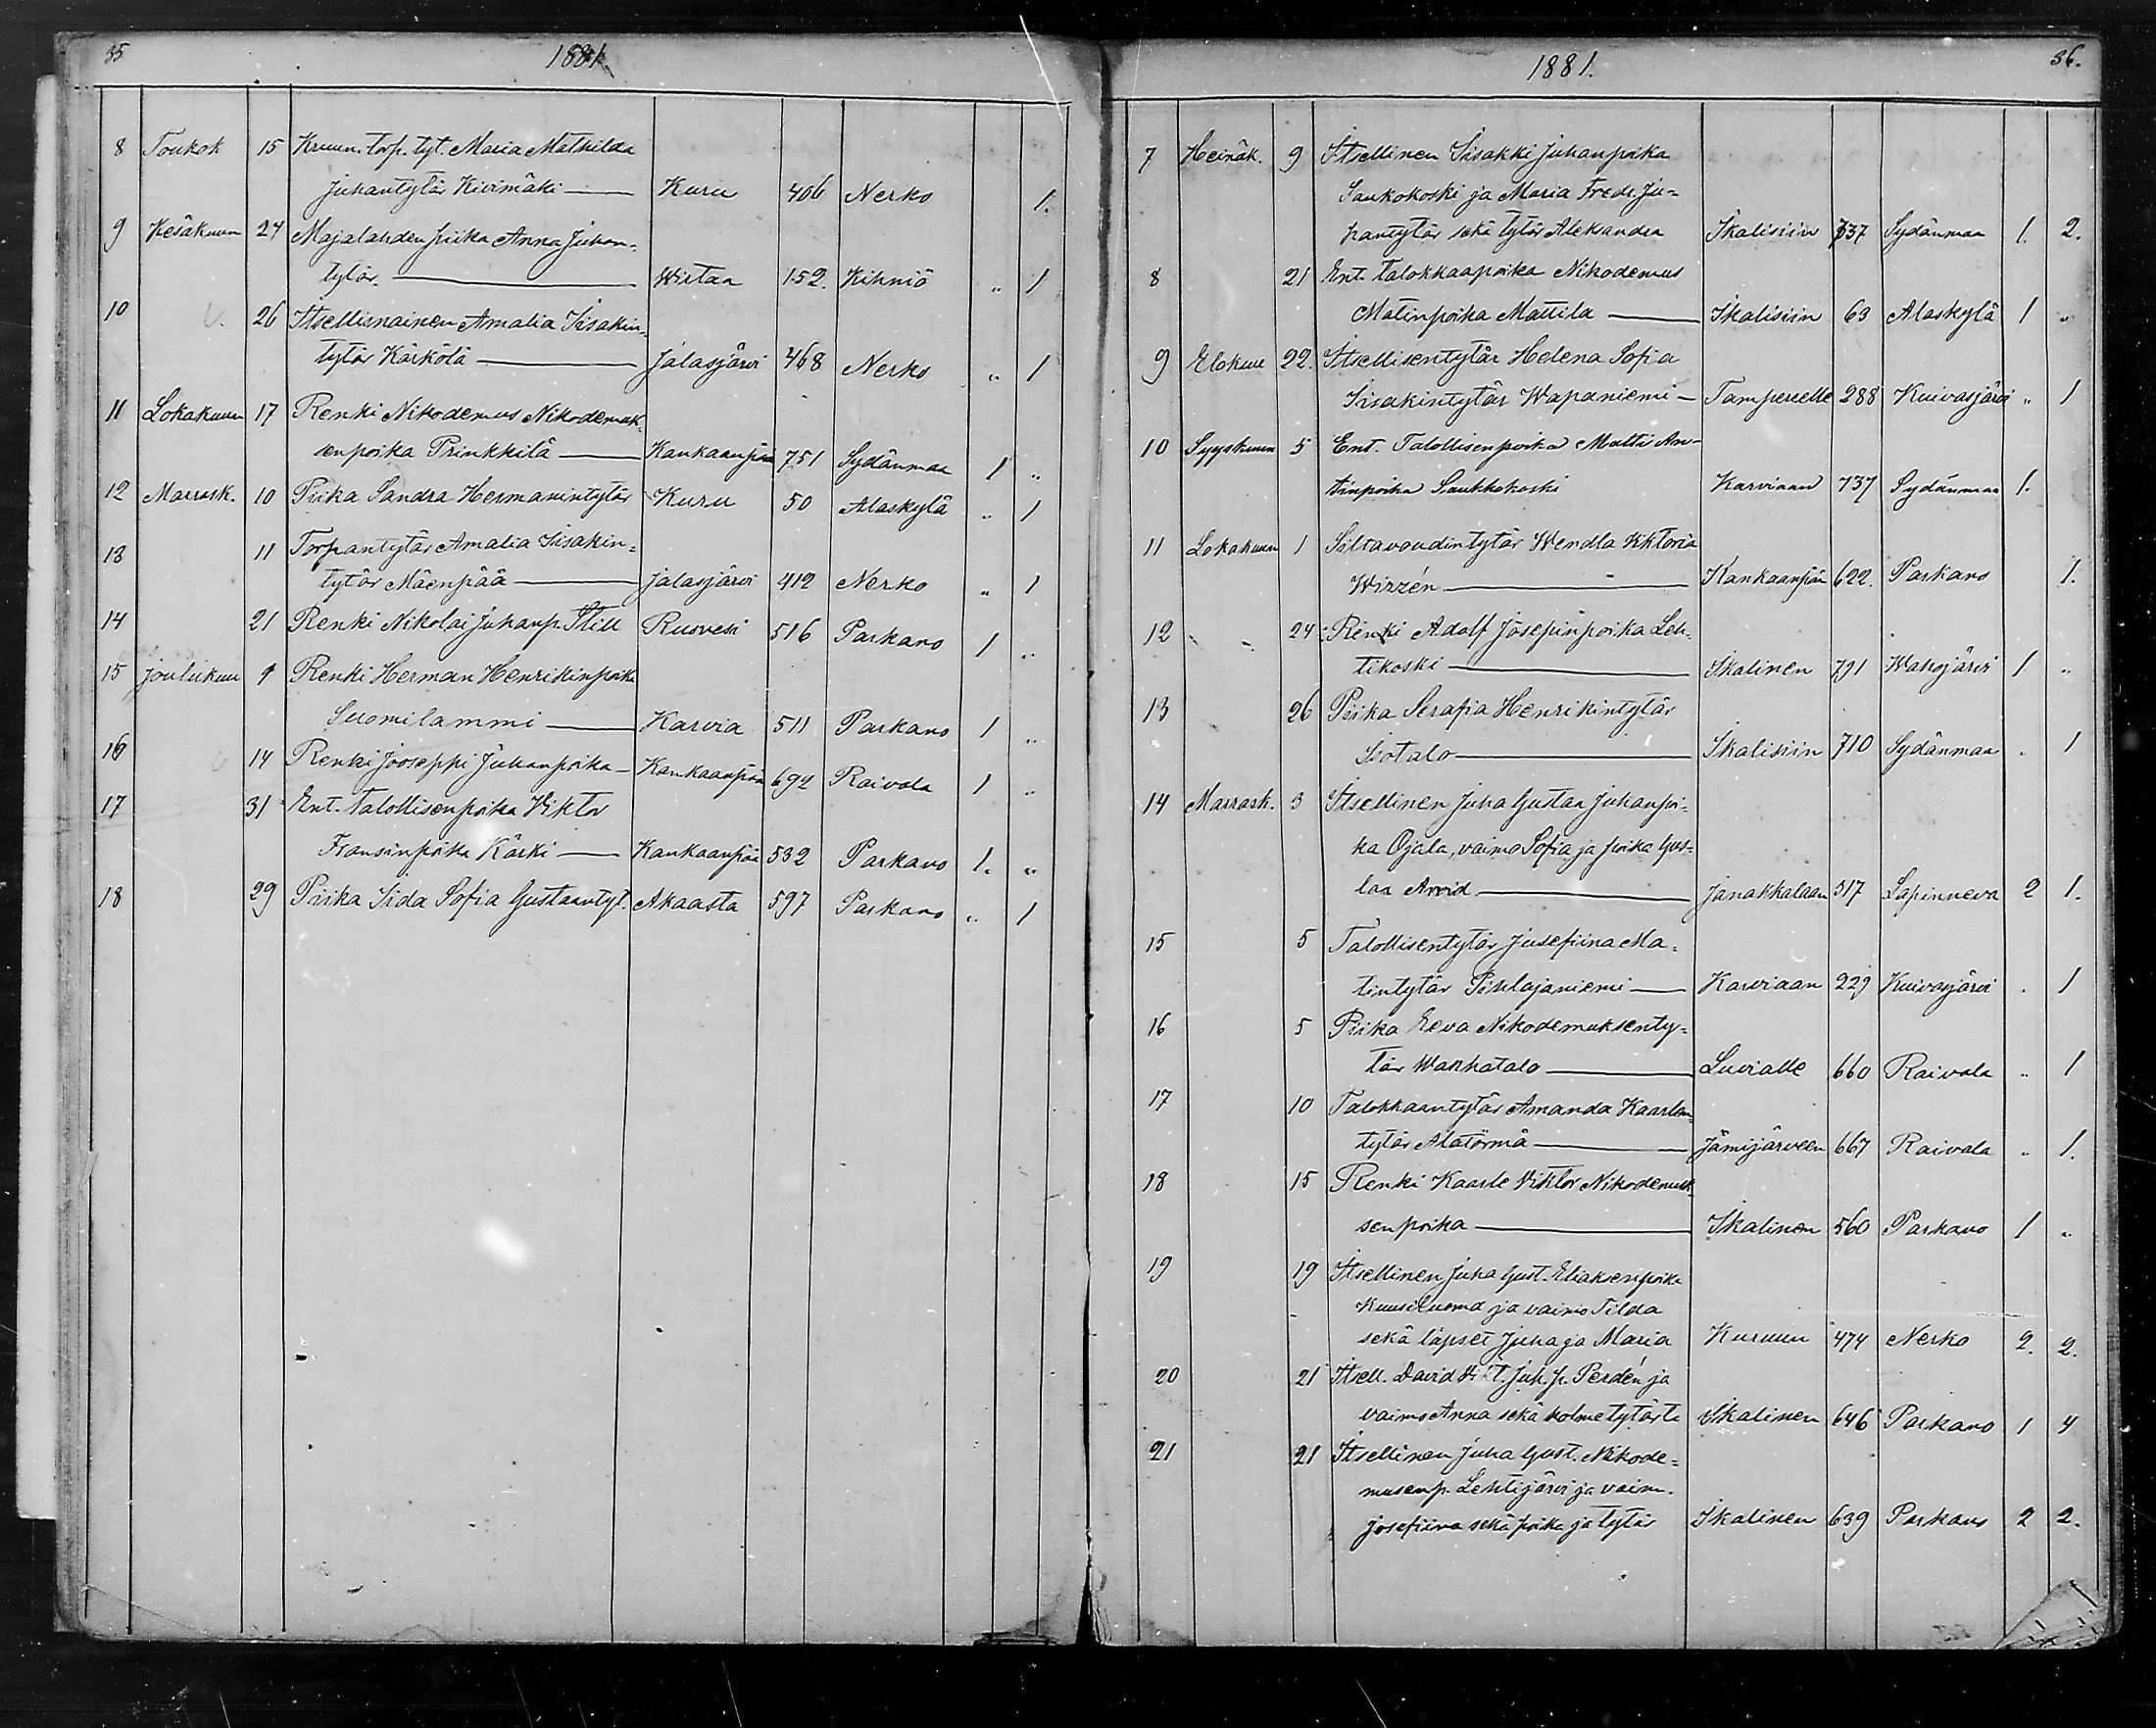 35
1881
8 Toukok 15 Kruun. torp. tyt. Maria Mathilda
Juhantytär Kivimäki — Kuru 406 Nerko 1.
9 Kesäkuun 24 Majalahden piika Anna Juhan-
tytär. — Wirtaa 152. Kihniö " 1
10 26 Itsellisnainen Amalia Iisakin-
tytär Kärkölä — Jalasjärvi 468 Nerko " 1
11 Lokakuun 17 Renki Nikodemus Nikodemuk-
senpoika Prinkkilä — Kankaanpää 751 Sydänmaa 1 "
12 Marrask. 10 Piika Sandra Hermanintytär Kuru 50 Alaskylä " 1
13 11 Torpantytär Amalia Iisakin=
tytär Mäenpää — Jalasjärvi 412 Nerko " 1
14 21 Renki Nikolai Juhanp. Still Ruovesi 516 Parkano 1 "
15 Joulukuu 9 Renki Herman Henrikinpoika
Suomilammi — Karvia 511 Parkano 1 "
16 14 Renki Jooseppi Juhanpoika — Kankaanpää 692 Raivala 1 "
17 31 Ent. talollisenpoika Viktor
Fransinpoika Kärki — Kankaanpää 532 Parkano 1. "
18 29 Piika Iida Sofia Gustaantyt. Akaasta 597 Parkano " 1
1881.
36.
7 Heinäk. 9 Itsellinen Iisakki Juhanpoika
Saukokoski ja Maria Fredr. Ju=
hantytär sekä tytär Aleksandra Ikalisiin 737 Sydänmaa 1. 2.
8 21 Ent. talokkaapoika Nikodemus
Matinpoika Mattila — Ikalisiin 63 Alaskylä 1 "
9 Elokuu 22. Itsellisentytär Helena Sofia
Iisakintytär Wapaniemi — Tampereelle 288 Kuivasjärvi " 1
10 Syyskuun 5 Ent. Talollisenpoika Matti An-
tinpoika Saukkokoski Karviaan 737 Sydänmaa 1.
11 Lokakuun 1 Siltavoudintytär Wendla Viktoria
Wirzén — Kankaanpää 622. Parkano 1.
12 " " 24 Renki Adolf Josepinpoika Leh-
tikoski — Ikalinen 791 Wahojärvi 1 "
13 26 Piika Serafia Henrikintytär
Isotalo — Ikalisiin 710 Sydänmaa . 1
14 Marrask. 3 Itsellinen Juha Gustaa Juhanpoi-
ka Ojala, vaimo Sofia ja poika Gus=
taa Arvid — Janakkalaan 317 Lapinneva 2 1.
15 5 Talollisentytär Josefiina Ma=
tintytär Pihlajaniemi — Karviaan 229 Kuivasjärvi . 1
16 5 Piika Eeva Nikodemuksenty=
tär Wanhatalo — Luvialle 660 Raivala " 1
17 10 Talokkaantytär Amanda Kaarlen
tytär Alatörmä — Jämijärveen 667 Raivala " 1.
18 15 Renki Kaarle Viktor Nikodemuk
senpoika — Ikalinen 560 Parkano 1 "
19 19 Itsellinen Juha Gust. Eliaksenpoika
Kuusiluoma ja vaimo Tilda
sekä lapset Juha ja Maria Kuruun 474 Nerko 2. 2.
20 21 Itsell. David Vikt. Juh. p. Perdén ja
vaimo Anna sekä kolme tytärtä Ikalinen 646 Parkano 1 4
21 21 Itsellinen Juha Gust. Nikode=
musenp. Lehtijärvi ja vaim.
Josefiina sekä poika ja tytär Ikalinen 639 Parkano 2 2.